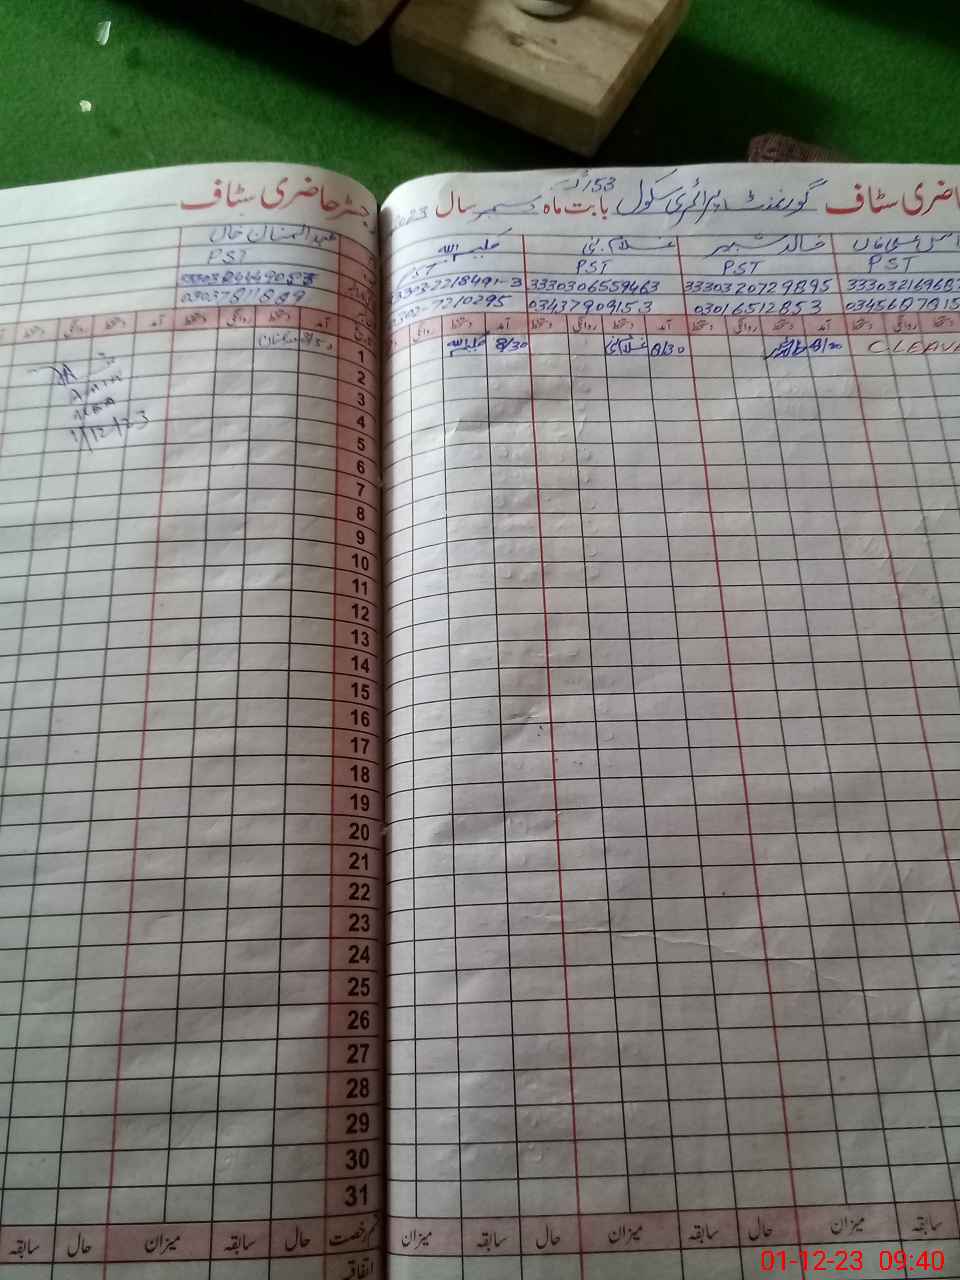 رجسٹر حاضری سٹاف
حاضری سٹاف گورنمنٹ پرائمری سکول 153 بابت ماہ دسمبر سال 2023
عبدالمنان خان
PST
03037811889
کلیم اللہ
PST
33303-2218491-3
0302-7210295
غلام نبی
PST
3330306559463
03437909153
خالد
PST
3330320729895
03016512853
PST
333032169687
0345687815
آمد دستخط روانگی دستخط آمد دستخط روانگی دستخط
آمد دستخط روانگی دستخط آمد دستخط روانگی دستخط آمد دستخط روانگی دستخط
1
8/30
8/30
8/30
C.LEAVE
Amin
AEO
1/12/23
2
3
4
5
6
7
8
9
10
11
12
13
14
15
16
17
18
19
20
21
22
23
24
25
26
27
28
29
30
31
قسم رخصت حال سابقہ میزان حال سابقہ
سابقہ میزان حال سابقہ میزان حال سابقہ میزان
اتفاقیہ
01-12-23 09:40